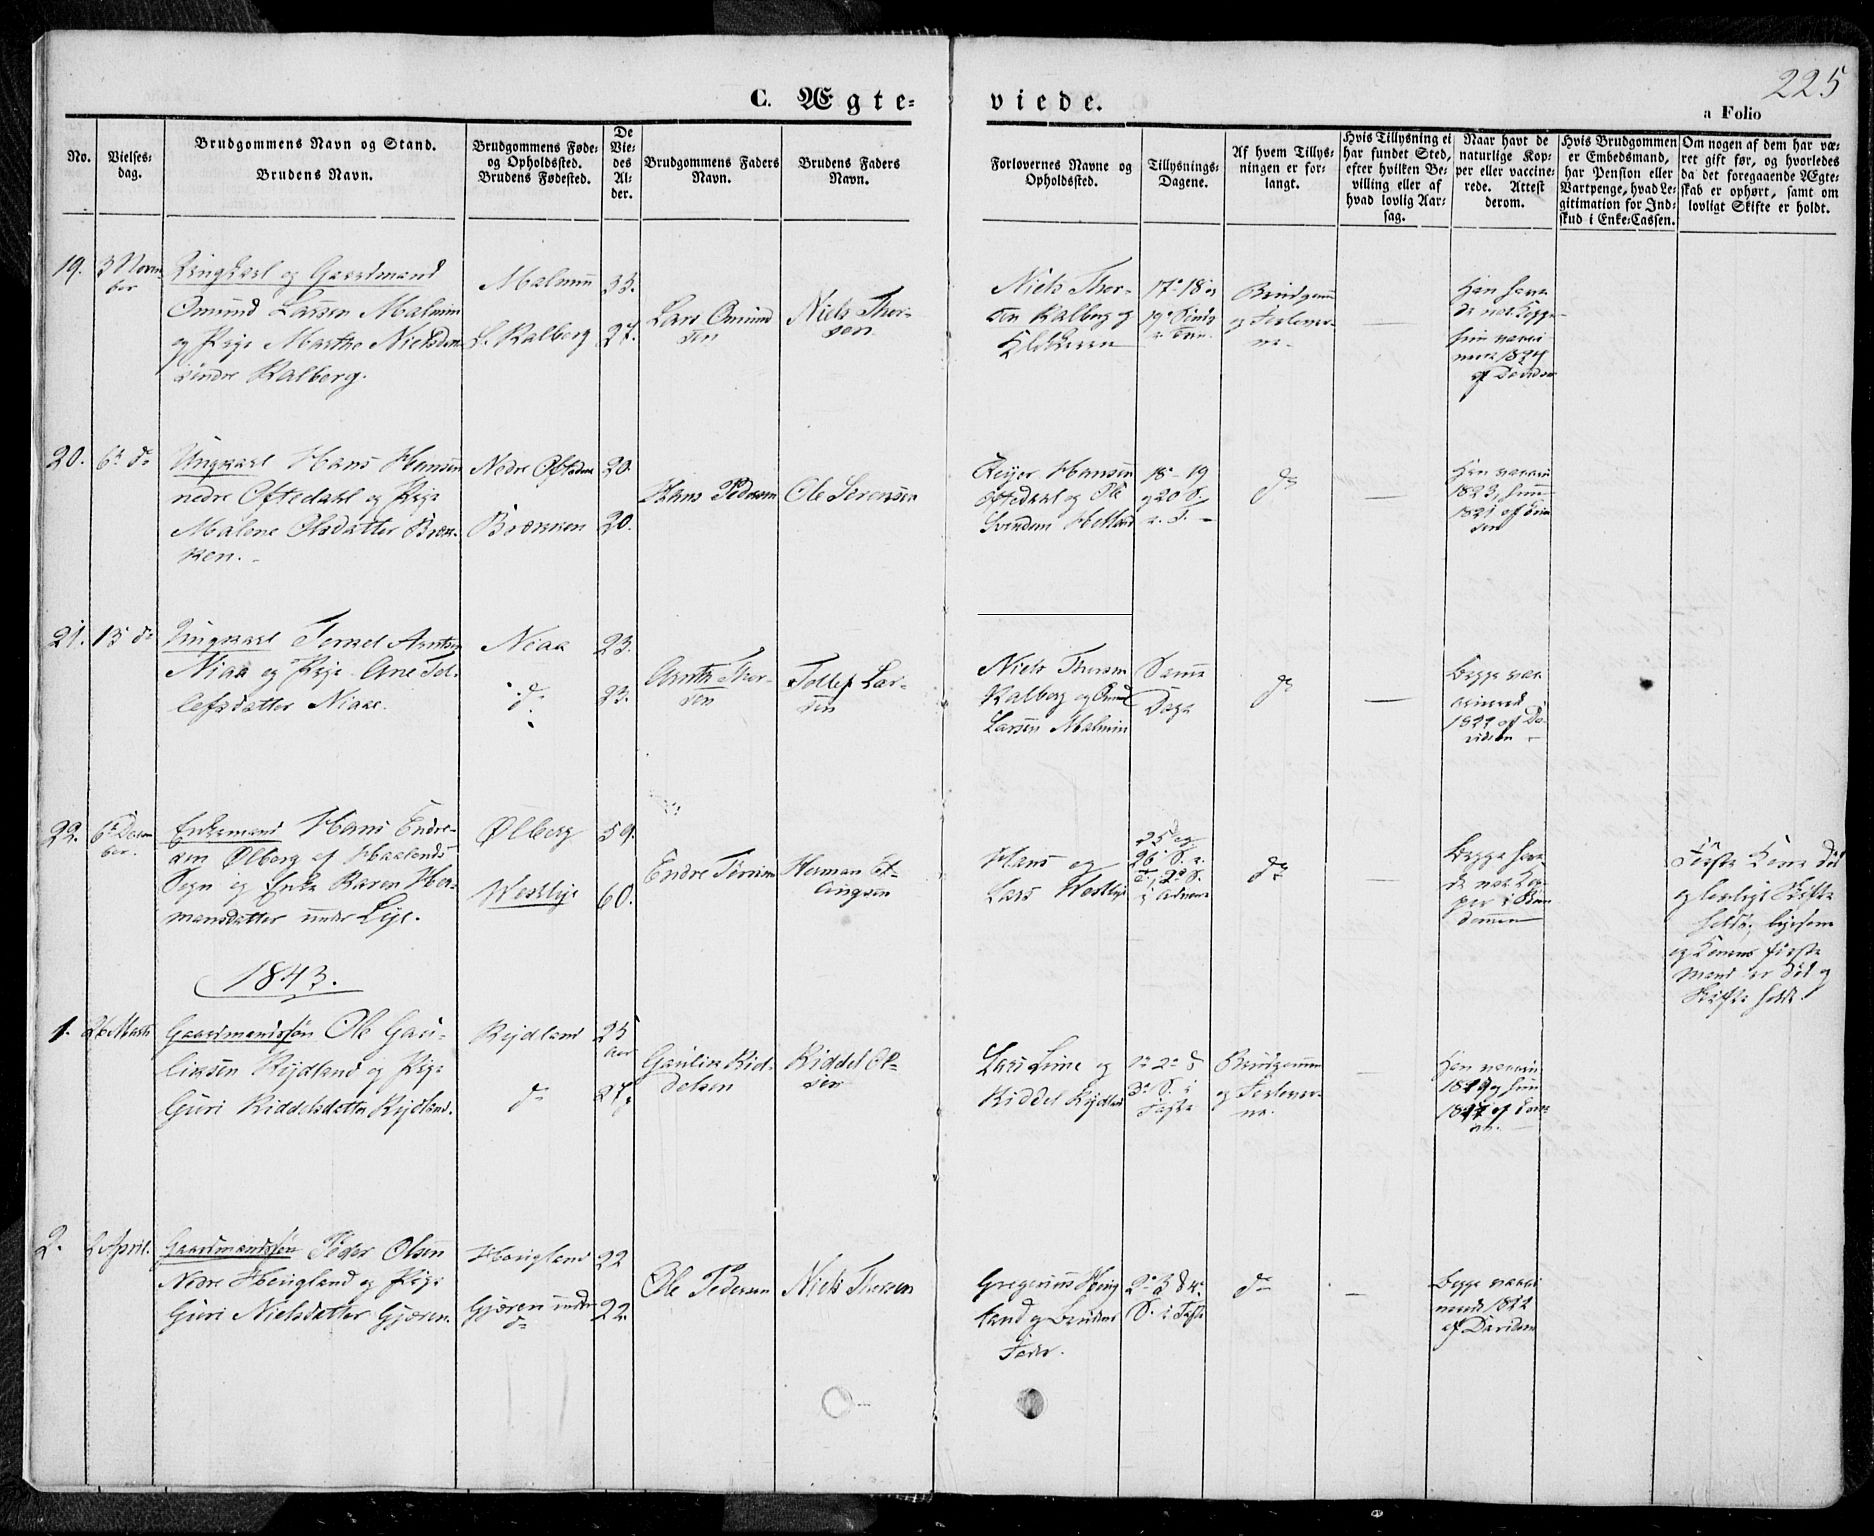 225
C. Ægte-
viede.
a Folio
No.
Vielses-
dag.
Brudgommens Navn og Stand.
Brudens Navn.
Brudgommens Føde-
og Opholdssted.
Brudens Fødested.
De
Vie-
des
Al-
der.
Brudgommens Faders
Navn.
Brudens Faders
Navn.
Forlovernes Navne og
Opholdssted.
Tillysnings-
Dagene.
Af hvem Tillys-
ningen er for-
langt.
Hvis Tillysning ei
har fundet Sted,
efter hvilken Be-
villing eller af
hvad lovlig Aar-
sag.
Naar havt de
naturlige Kop-
per eller vaccine-
rede. Attest
derom.
Hvis Brudgommen
er Embedsmand,
har Pension eller
Vartpenge, hvad Le-
gitimation for Ind-
skud i Enke-Cassen.
Om nogen af dem har væ-
ret gift før, og hvorledes
da det foregaaende Ægte-
skab er ophørt, samt om
lovligt Skifte er holdt.
19.
3 Novem-
ber
Ungkarl og Gaardmand
Omund Larsen Malmin
og Pige Marthe Nielsdatter
søndre Kalberg.
Malmin
S. Kalberg
35.
27.
Lars Omund
sen
Niels Thor-
sen
Niels Thor-
sen Kalberg og
17e 18e og
19e Sønd.
e. Trin.
Brudgom
og Forlover-
ne.
Han hav-
de nat. Kopper
hun vacci
neret 1824
af Davidsen
20.
6te do
Ungkarl Hans Hansen
nedre Oftedahl og Pige
Malene Olsdatter Bræk-
ken.
Nedre Oftedal
Brækken
20.
20.
Hans Pedersen
Ole Sørensen
Reijer Hansen
Oftedahl og Ole
Svendsen Hetland
18e 19
og 20 S.
e. T.
do
Han vaccin
1823, hun
1821 af
21.
13 do
Ungkarl Tornel Arntsen
Niaa og Pige Ane Tol-
lefsdatter Niaa.
Niaa
do
23.
23.
Arnt Thor-
sen
Tollef Lar-
sen
Niels Thorsen
Kalberg og Omund
Larsen Malmin
Samme
Dage
do
Begge vac-
cinered
1821 af Da-
vidsen
22.
6te Decem
ber.
Enkemand Hans Endre-
sen Ølberg af Haalands
Sogn og Enke Karen Her-
mansdatter under Lye.
Ølberg
Westlye
59.
60.
Endre Tørresen
Herman El-
lingsen
Hans og
Lars Westlye
25 og
26 S. e.
T., 2d S.
i Advent
do
Begge hav-
de nat. Kop-
per i Barn
dommen
Første Kone død
og lovligt Skifte
holdt, ligesom
og Konens første
Mand er død og
Skifte holdt.
1843.
1.
26 Marts
Gaardmandssøn Ole Gau-
liksen Rydland og Pige
Guri Kiddelsdatter Rydland.
Rydland
do
25
Aar
27.
Gaulik Kid-
delsen
Kiddel Ol-
sen
Lars Lime og
Kiddel Rydland
1e 2e &
3e S. i
Faste
Brudgommen
og Forlover-
ne.
Han vaccin
1819 og hun
2.
2 April.
Gaardmandssøn Peder Olsen
Nedre Haugland og Pige
Guri Nielsdatter Gjæren.
Haugland
Gjæren under
do
22
22.
Ole Pedersen
Niels Thorsen
Gregorius Houg
land og Brudens
Fader.
2e 3 & 4e
S. i Faste
do
Begge vacci
nerede 1822
af Davidsen